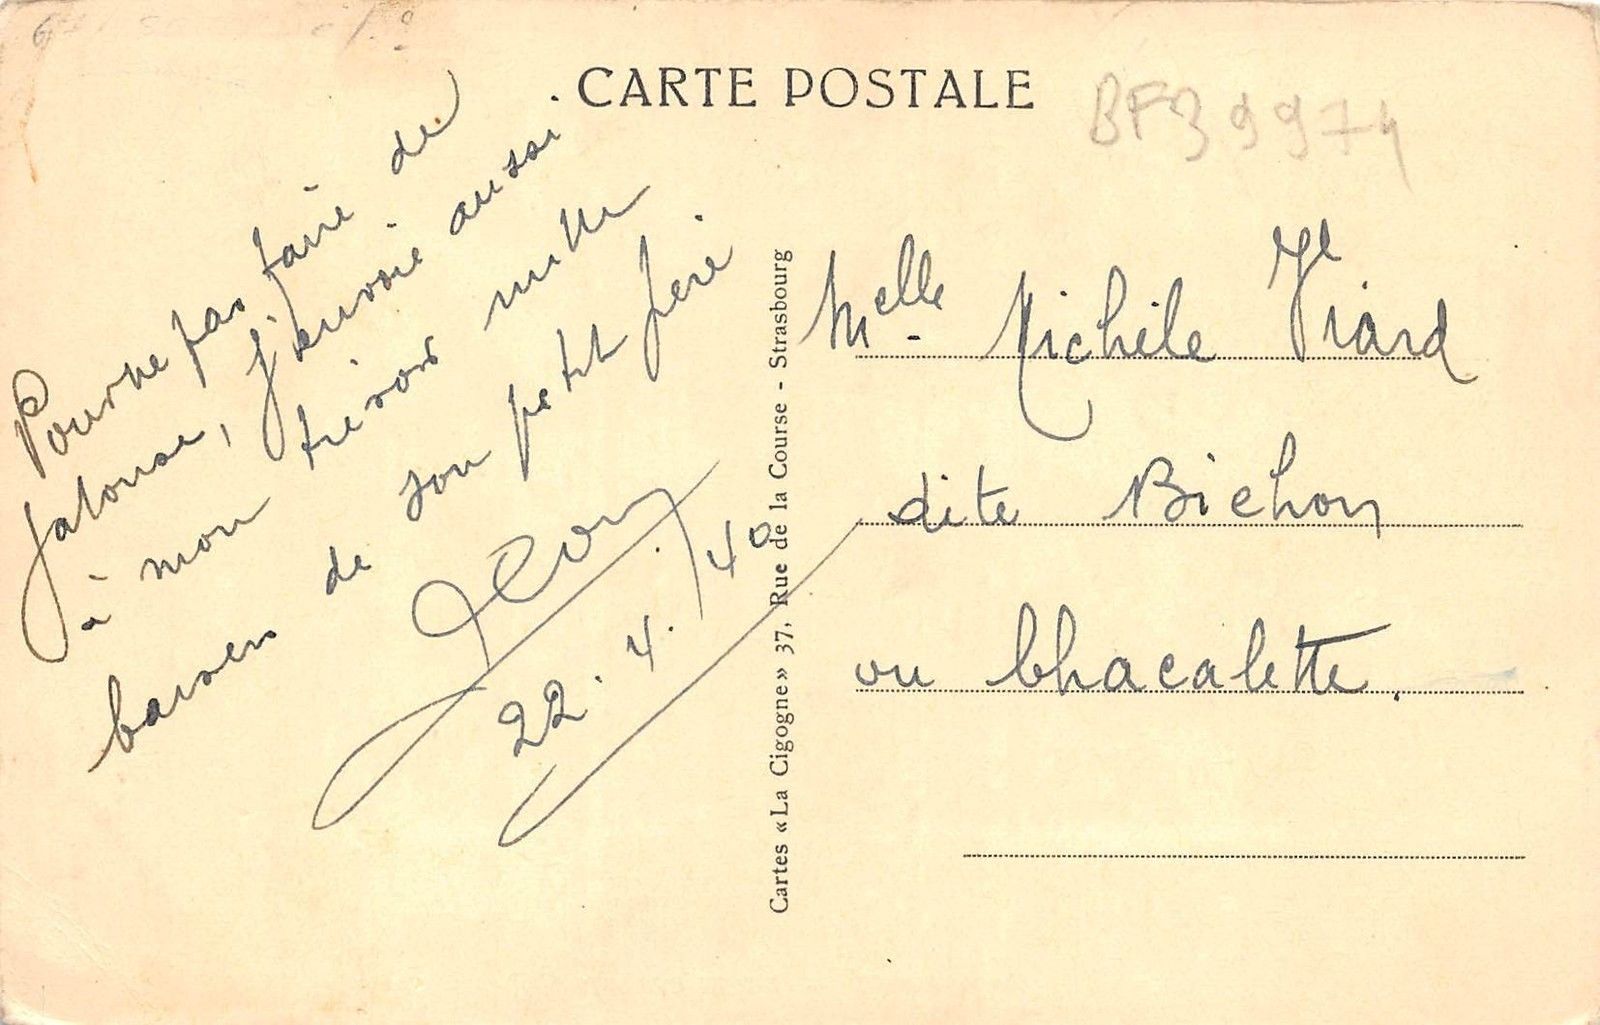 CARTE POSTALE
BF39974
Pour ne pas faire de
jalouse, j'envoie aussi
à mon trésor mille
baisers de son petit père
22.4.40
Cartes «La Cigogne» 37, Rue de la Course - Strasbourg
Melle Michèle Viard
dite Bichon
ou Chacalette.